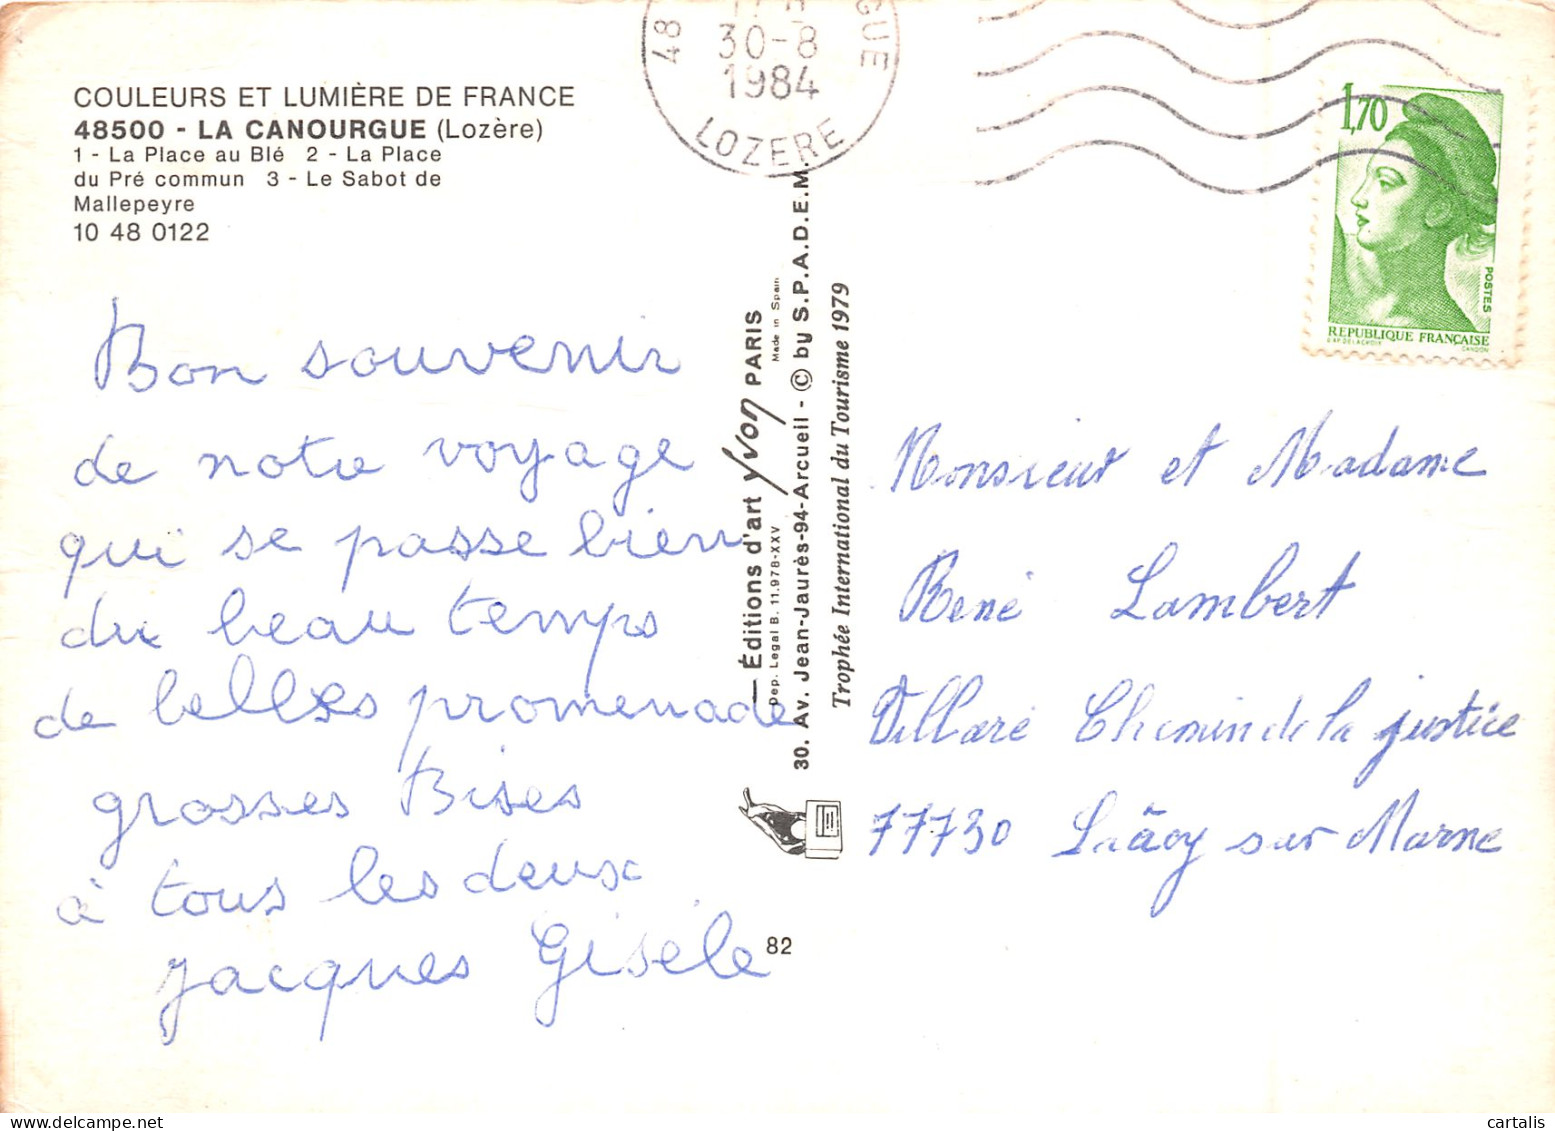 COULEURS ET LUMIÈRE DE FRANCE
48500 - LA CANOURGUE (Lozère)
1 - La Place au Blé 2 - La Place
du Pré commun 3 - Le Sabot de
Mallepeyre
10 48 0122
48
GUE
30-8
1984
LOZERE
1,70
POSTES
REPUBLIQUE FRANÇAISE
D'AP. DELACROIX
GANDON
Bon souvenir
de notre voyage
qui se passe bien
du beau temps
de belles promenade
grosses Bises
à tous les deux
Jacques Gisèle
Éditions d'art Yvon PARIS
Dep. Legal B. 11.978-XXV
Made in Spain
30. Av. Jean-Jaurès-94-Arcueil - © by S.P.A.D.E.M.
Trophée International du Tourisme 1979
82
Monsieur et Madame
René Lambert
Villaré Chemin de la justice
77730 sur Marne
cartalis